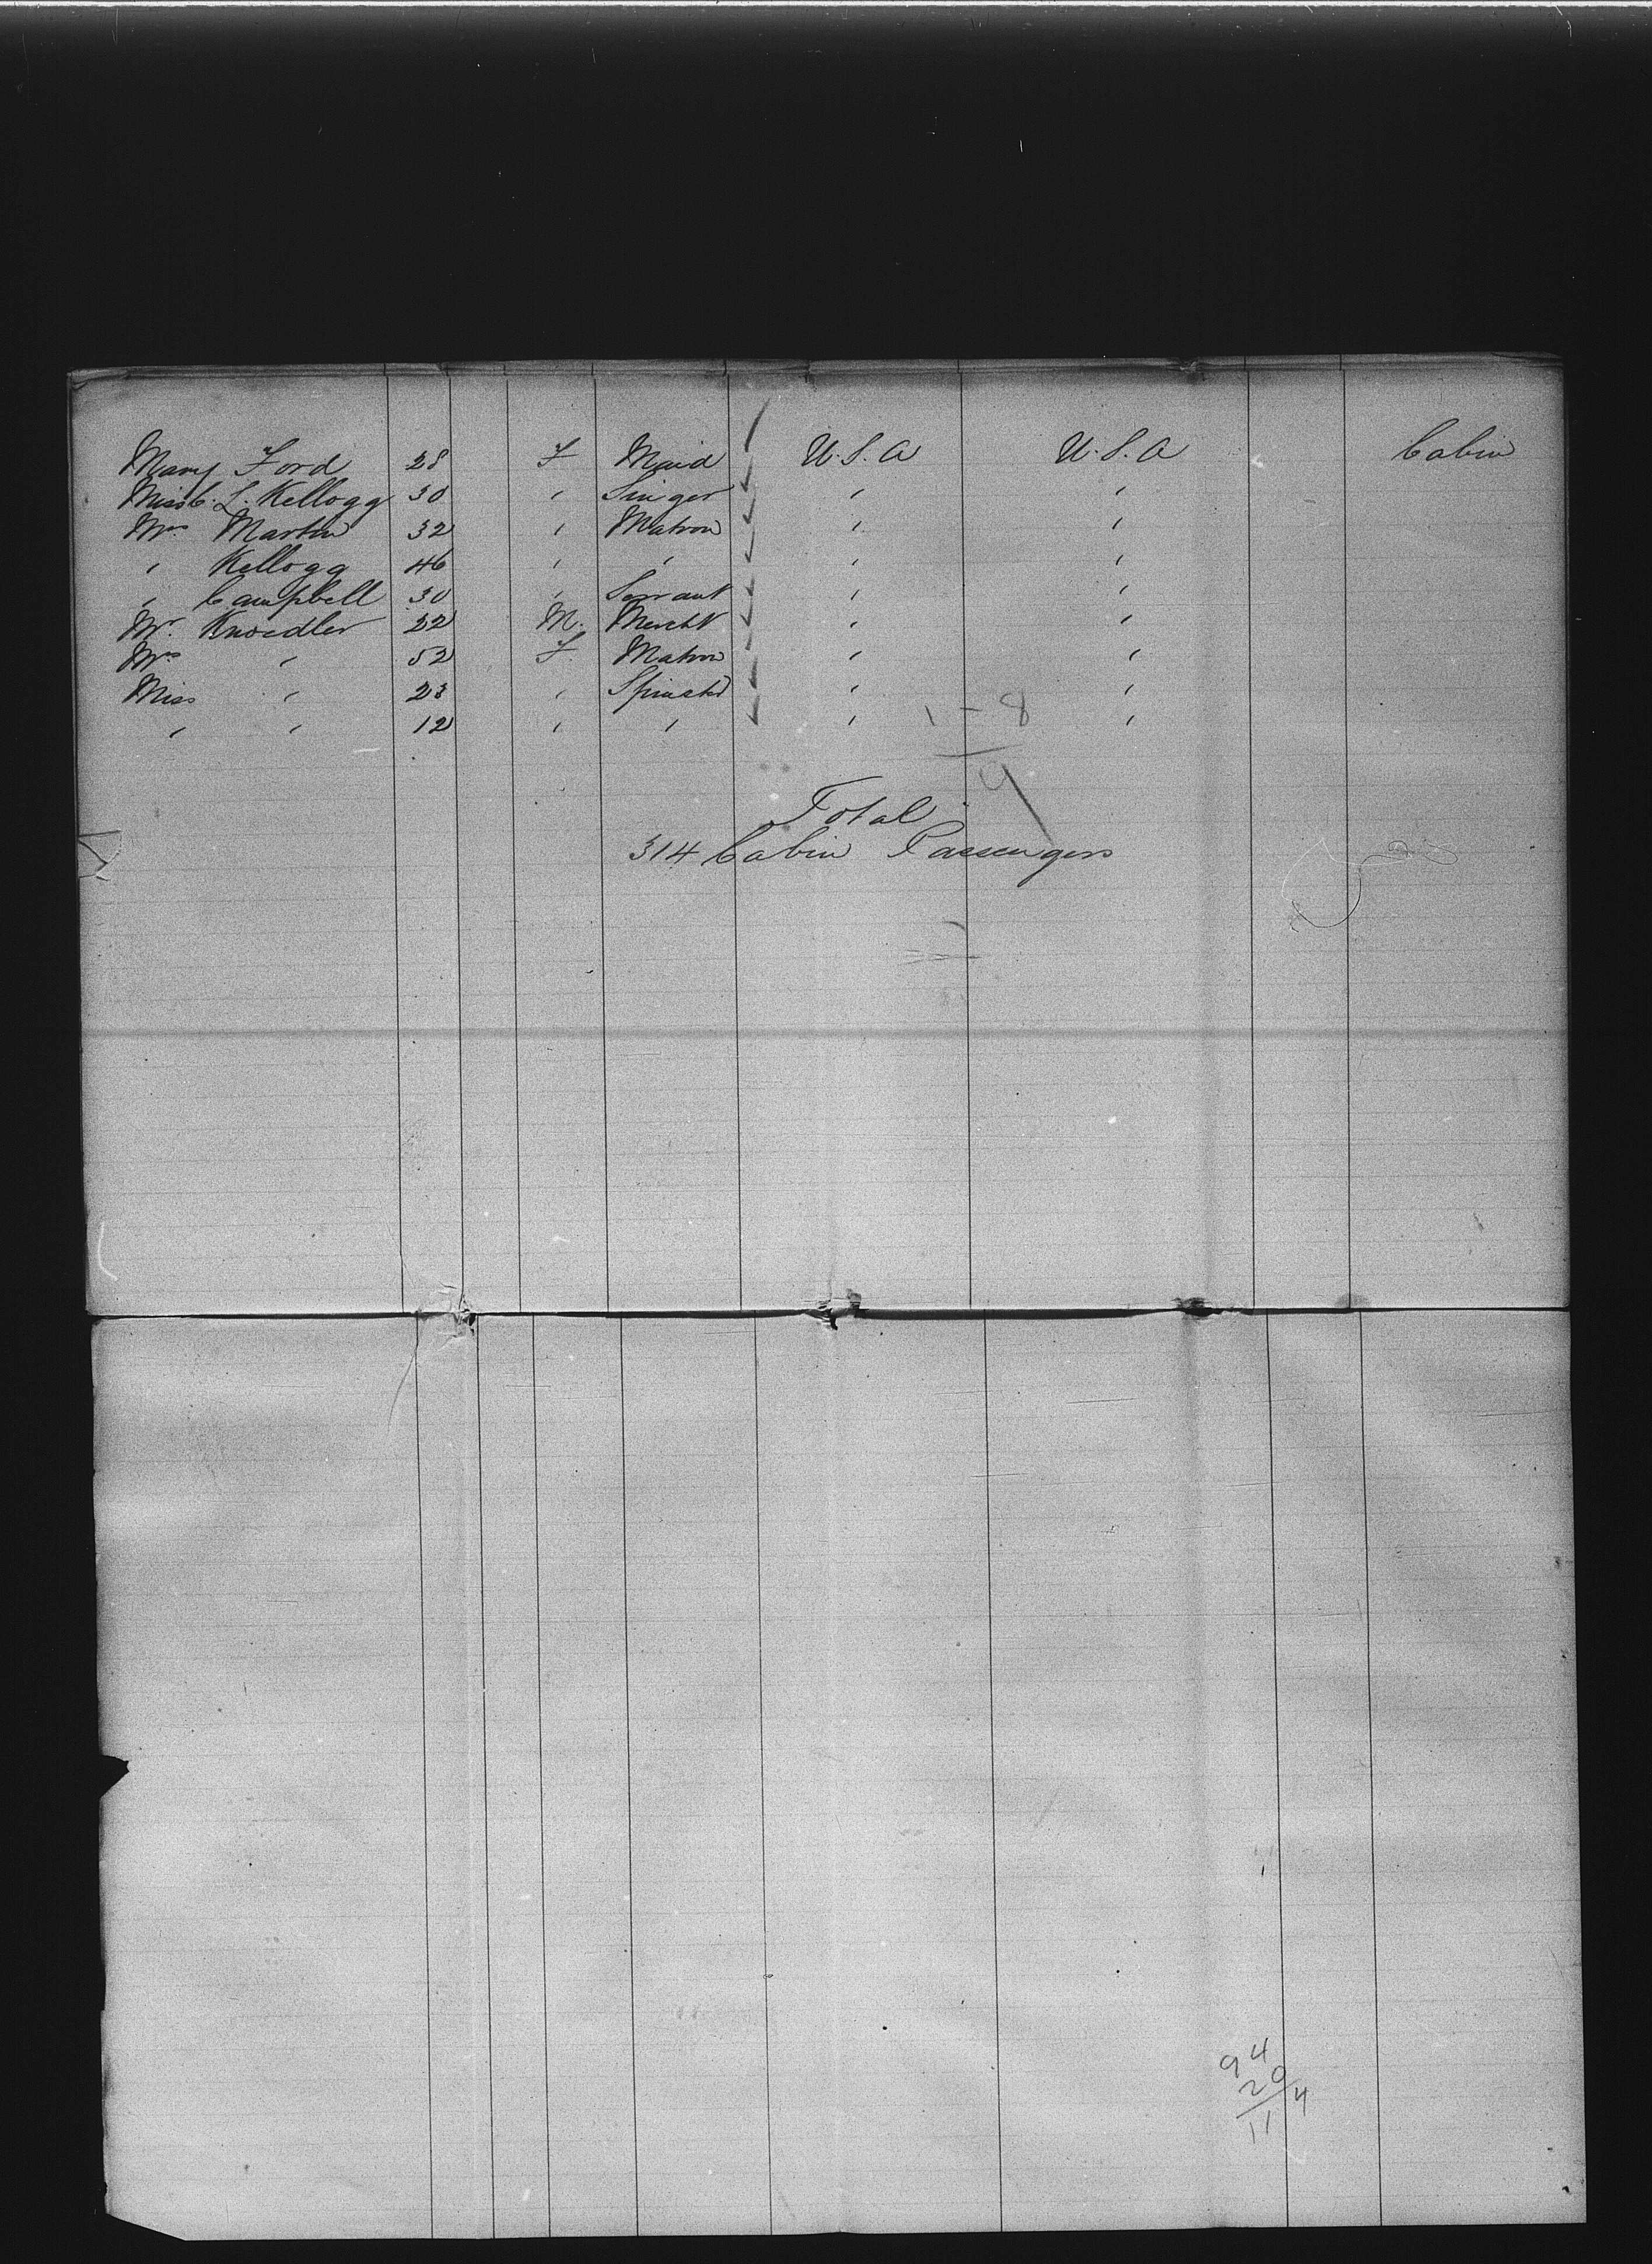 Mary Ford 28 F Maid U.S.A U.S.A Cabin
Miss C. L. Kellogg 30 " Singer " "
Mrs Martin 32 " Matron " "
" Kellogg 46 " " " "
" Campbell 30 " Servant " "
Mr. Knoedler 22 M. Mercht " "
Mrs " 52 F. Matron " "
Miss " 23 " Spinster " "
" " 12 " " " "
1 - 8
9
Total
314 Cabin Passengers
94
20
114